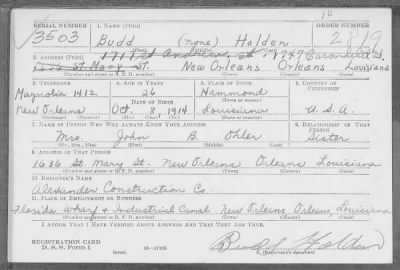 10
SERIAL NUMBER 1. NAME (Print) ORDER NUMBER
3503 Budd (none) Holden 2819
2. ADDRESS (Print) 1717 St Andrews St 1747 Carondelet St.
St. Mary St. New Orleans Orleans Louisiana
3. TELEPHONE 4. AGE IN YEARS 5. PLACE OF BIRTH 6. COUNTRY OF CITIZENSHIP
Magnolia 1412 26 Hammond
DATE OF BIRTH
New Orleans Oct 8 1914 Louisiana U.S.A.
7. NAME OF PERSON WHO WILL ALWAYS KNOW YOUR ADDRESS 8. RELATIONSHIP OF THAT PERSON
Mrs. John B. Ohler Sister
(Mr., Mrs., Miss) (First) (Middle) (Last)
9. ADDRESS OF THAT PERSON
1636 St. Mary St. New Orleans Orleans Louisiana
(Number and street or R. F. D. number) (Town) (County) (State)
10. EMPLOYER'S NAME
Alexander Construction Co.
11. PLACE OF EMPLOYMENT OR BUSINESS
Florida Wharf & Industrial Canal New Orleans, Orleans, Louisiana
(Number and street or R. F. D. number) (Town) (County) (State)
I AFFIRM THAT I HAVE VERIFIED ABOVE ANSWERS AND THAT THEY ARE TRUE.
REGISTRATION CARD
D. S. S. FORM 1 (over) 16—17105 Budd Holden
(Registrant's signature)